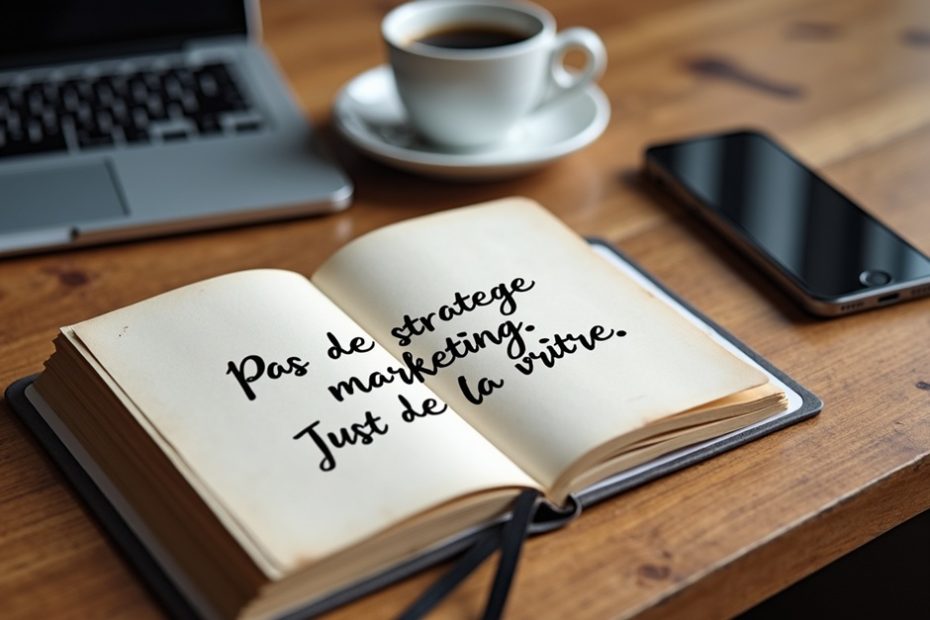 Pas de stratege
marketing.
Just de la vritre.